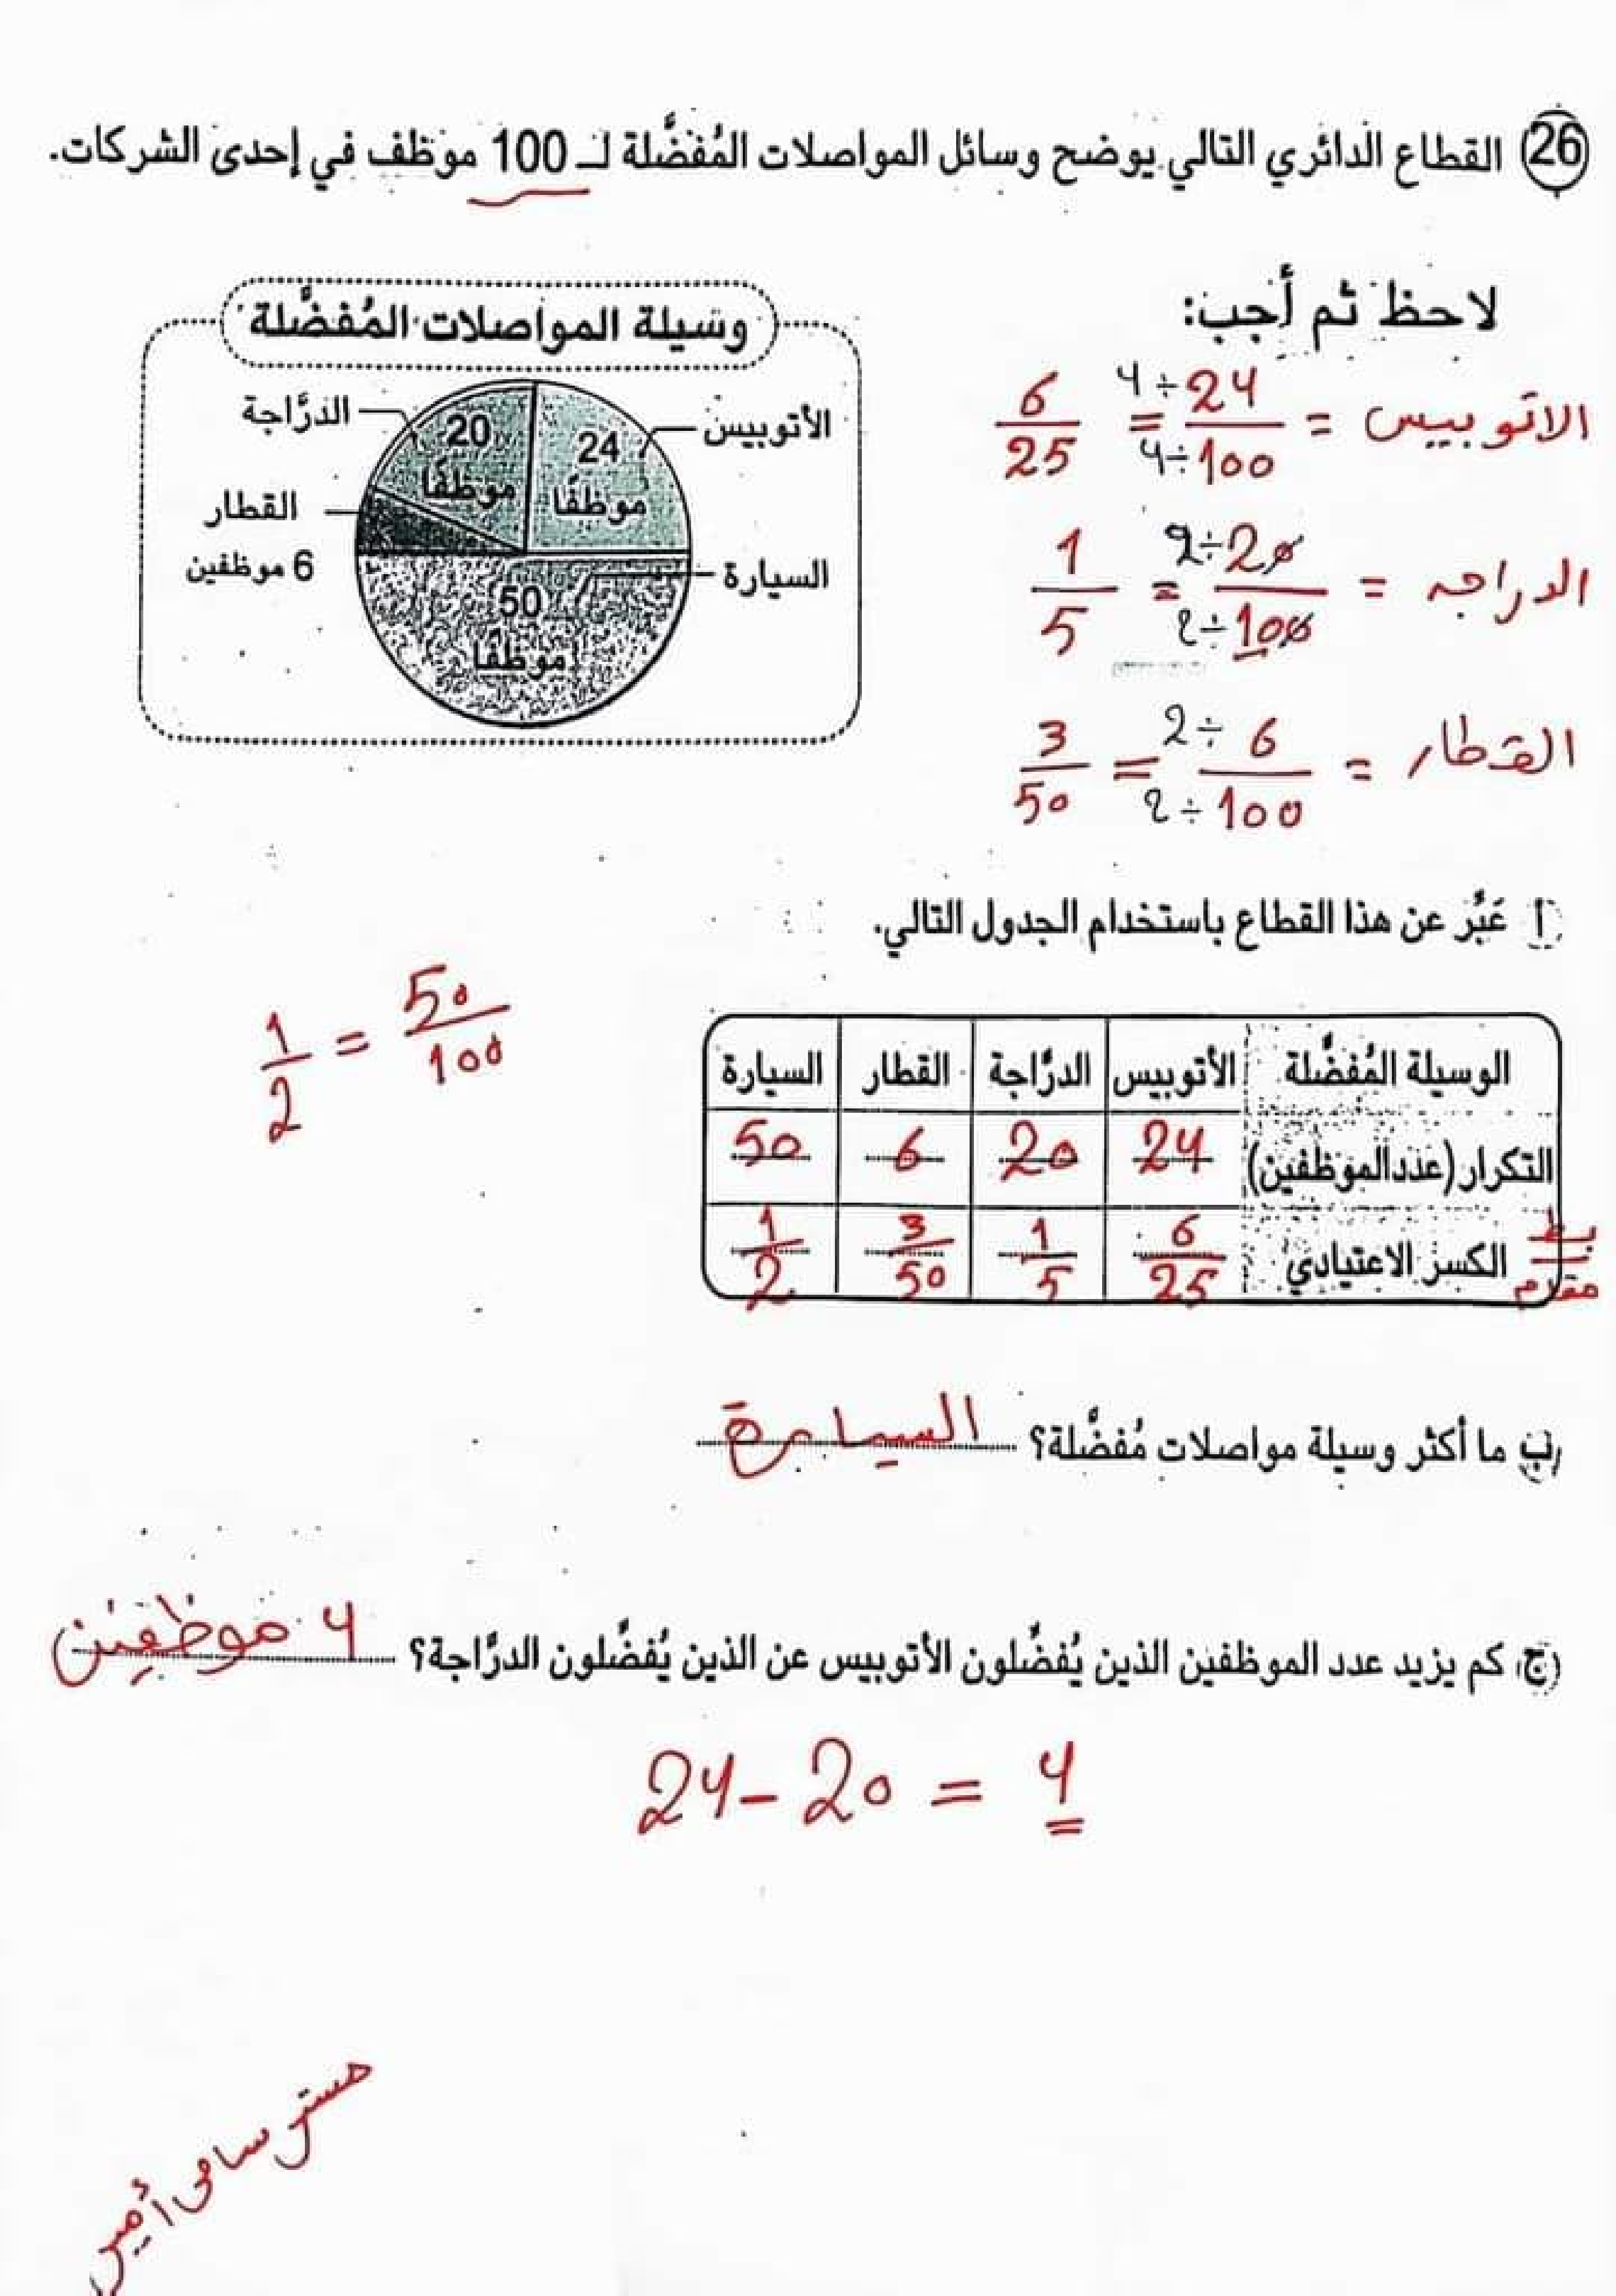 26 القطاع الدائري التالي يوضح وسائل المواصلات المُفضَّلة لـ 100 موظف في إحدى الشركات.
لاحظ ثم أجب:
وسيلة المواصلات المُفضَّلة
الدرَّاجة
20 موظفًا
الأتوبيس
24 موظفًا
القطار
6 موظفين
السيارة
50 موظفًا
الاتوبيس = 24/100 = 6/25
4÷
4÷
الدراجه = 20/100 = 1/5
2÷
2÷
القطار = 6/100 = 3/50
2÷
2÷
أ عَبِّر عن هذا القطاع باستخدام الجدول التالي.
1/2 = 50/100
الوسيلة المُفضَّلة الأتوبيس الدرَّاجة القطار السيارة
التكرار (عدد الموظفين) 24 20 6 50
الكسر الاعتيادي 6/25 1/5 3/50 1/2
بسط
مقام
ب ما أكثر وسيلة مواصلات مُفضَّلة؟ السيارة
ج كم يزيد عدد الموظفين الذين يُفضِّلون الأتوبيس عن الذين يُفضِّلون الدرَّاجة؟ 4 موظفين
24 - 20 = 4
مستر سامى أمين